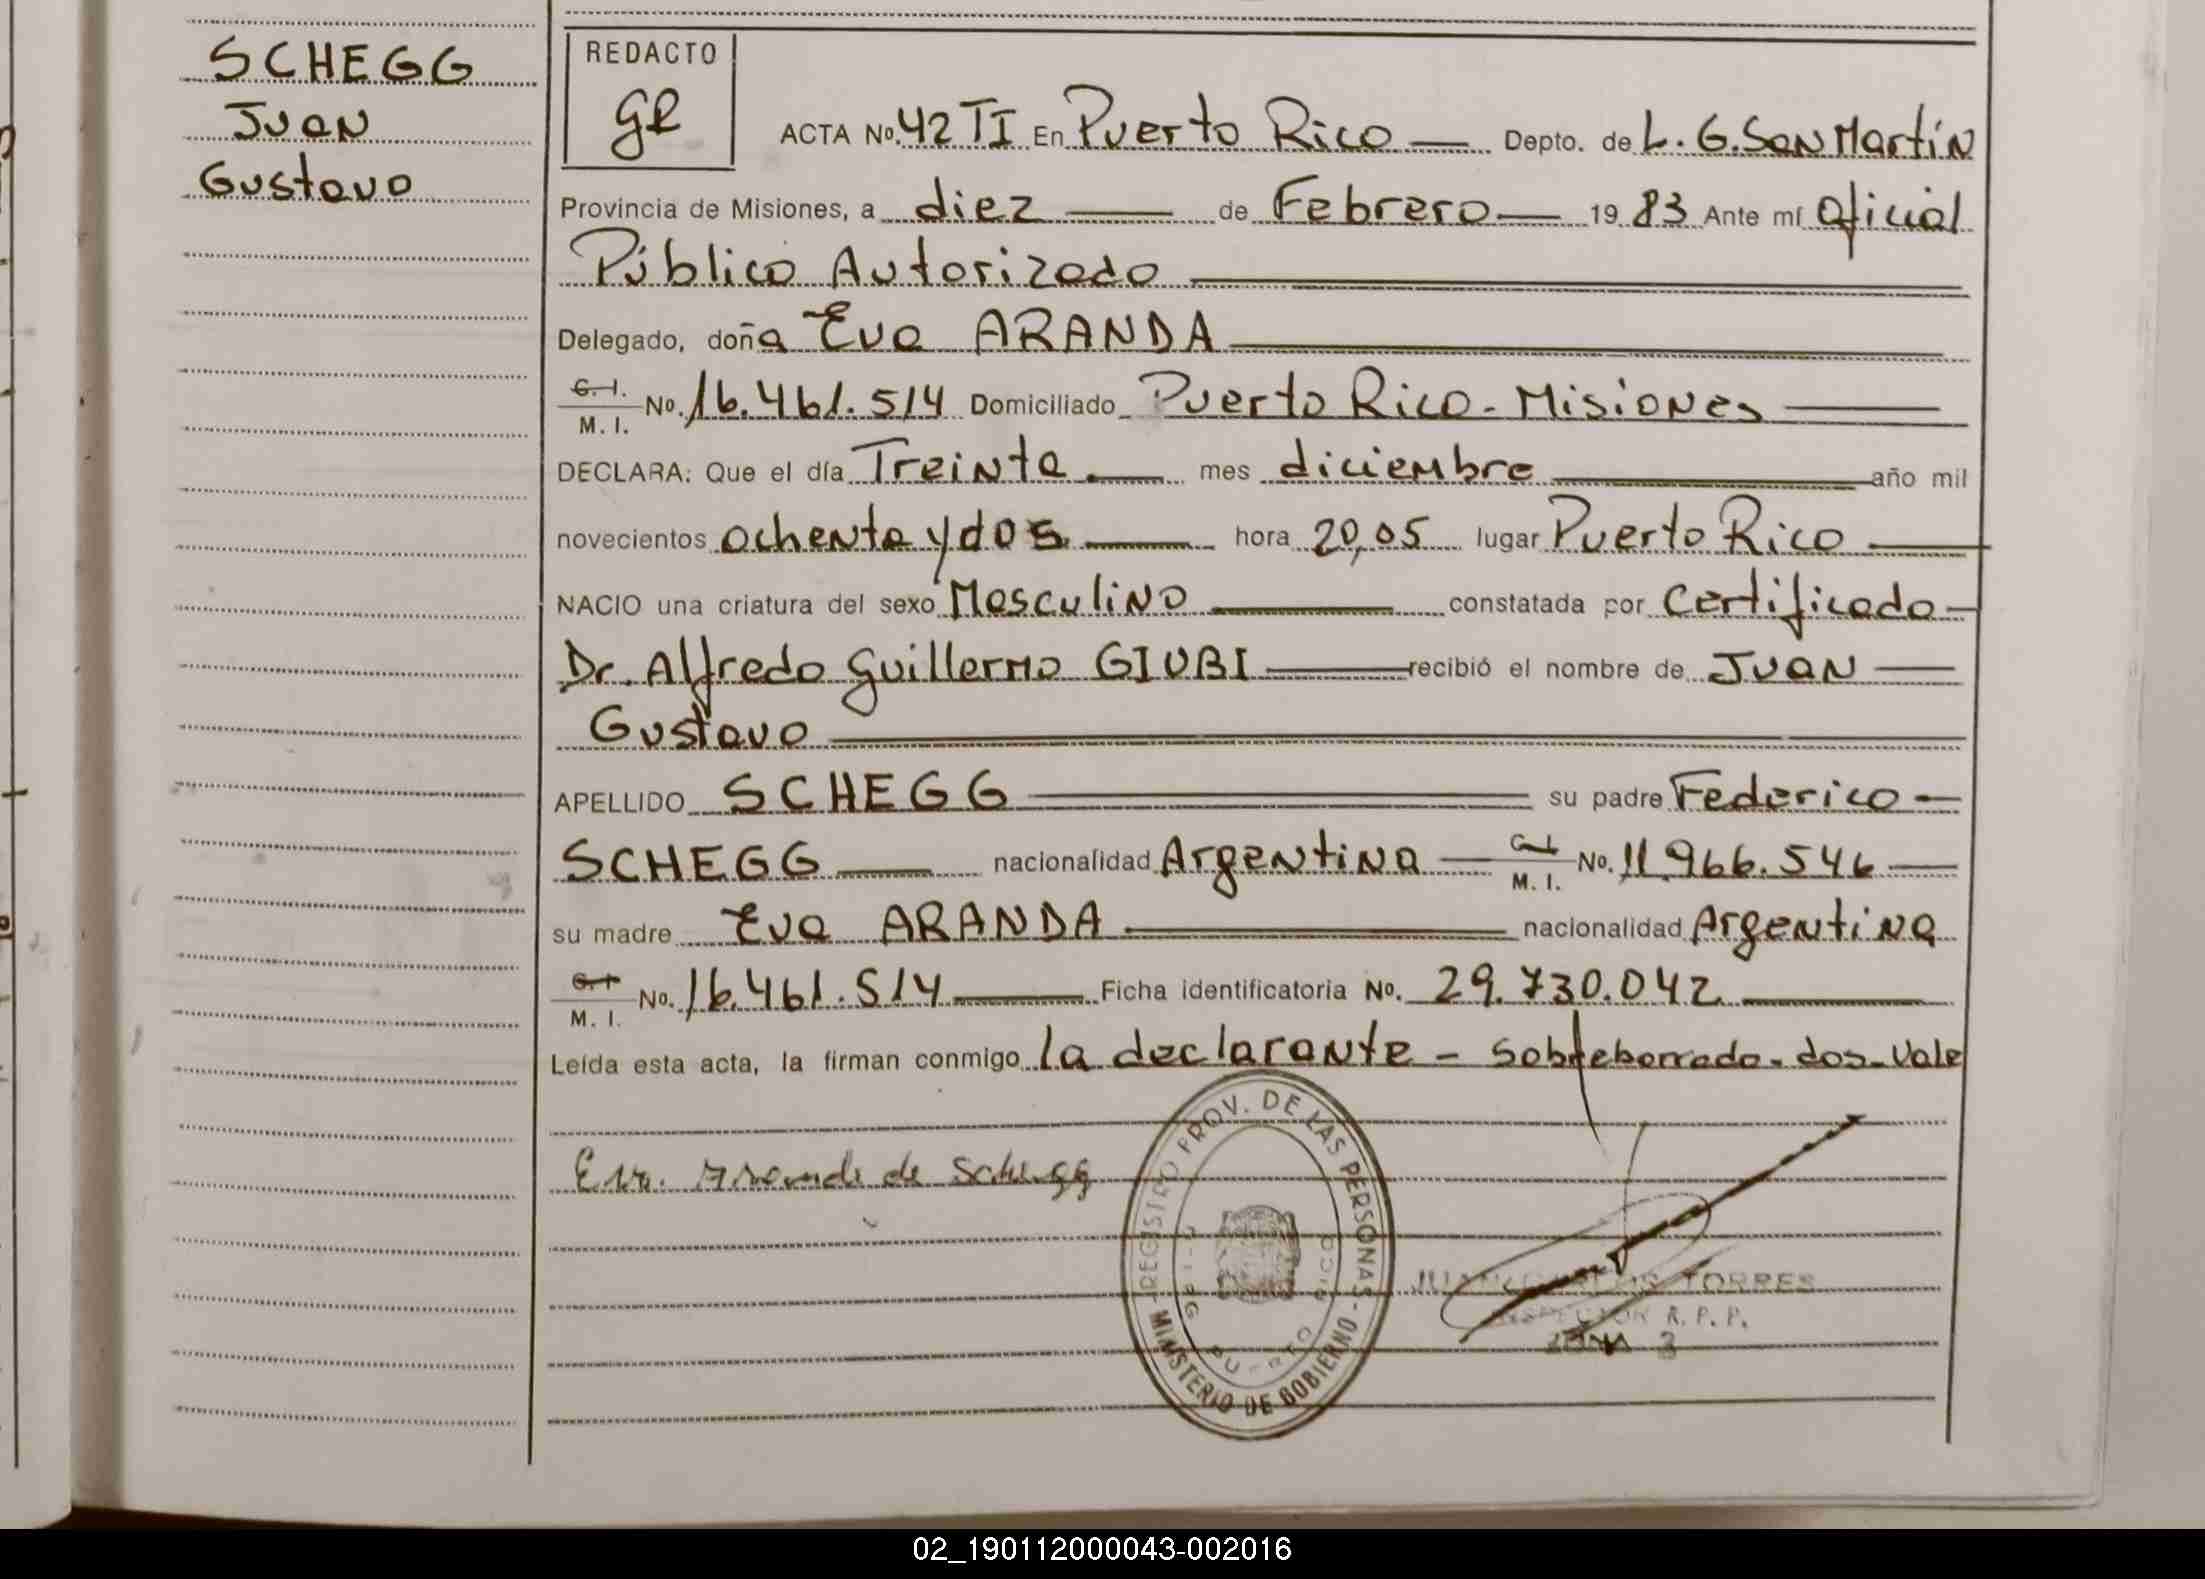 SCHEGG
Juan
Gustavo
REDACTO
GR
ACTA No. 42 TI En Puerto Rico — Depto. de L. G. San Martín
Provincia de Misiones, a diez — de Febrero — 19 83 Ante mí Oficial
Público Autorizado —
Delegado, doña Eva ARANDA —
C. I.
M. I. No. 16.461.514 Domiciliado Puerto Rico - Misiones —
DECLARA: Que el día Treinta — mes diciembre — año mil
novecientos ochenta y dos — hora 20,05 lugar Puerto Rico —
NACIO una criatura del sexo Masculino — constatada por Certificado —
Dr. Alfredo Guillermo GIUBI — recibió el nombre de Juan —
Gustavo —
APELLIDO SCHEGG — su padre Federico —
SCHEGG — nacionalidad Argentina — C. I.
M. I. No. 11.966.546 —
su madre Eva ARANDA — nacionalidad Argentina
C. I.
M. I. No. 16.461.514 — Ficha identificatoria No. 29.730.042 —
Leída esta acta, la firman conmigo la declarante - Sobreborrado - dos - Vale
Eva Aranda de Schegg
REGISTRO PROV. DE LAS PERSONAS -
MINISTERIO DE GOBIERNO -
PUERTO RICO
JUAN CARLOS TORRES
INSPECTOR R. P. P.
ZONA 3
02_190112000043-002016